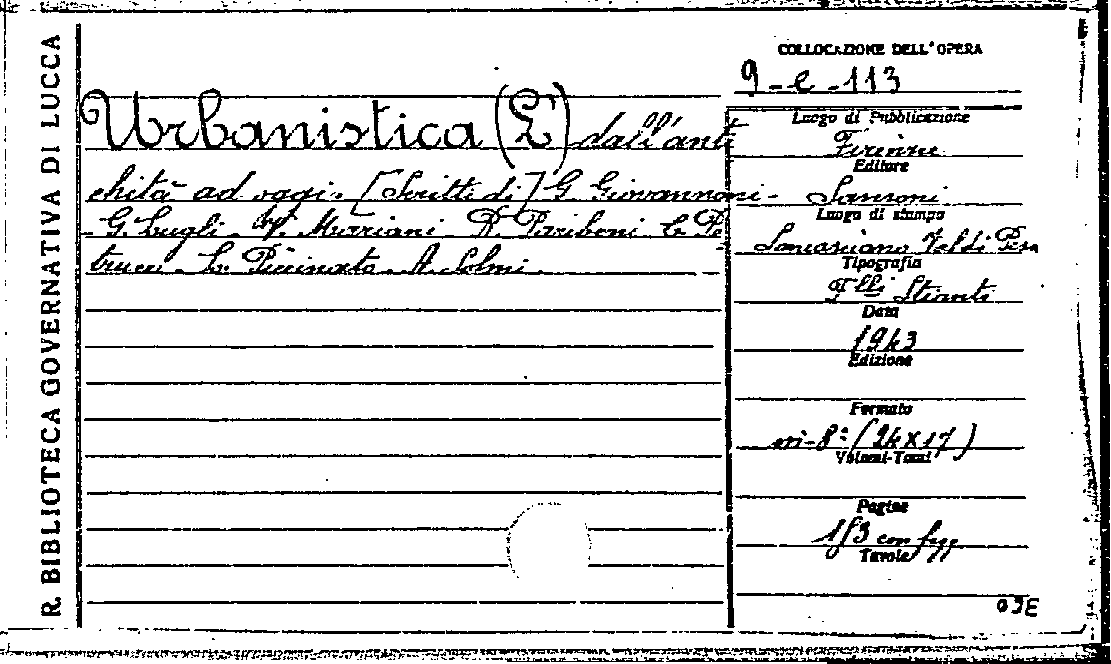 R. BIBLIOTECA GOVERNATIVA DI LUCCA
Urbanistica (L') dall'anti
chità ad oggi. [Scritti di] G Giovannoni -
- G. Lugli - V. Mariani - R. Paribeni - C. Pe
trucci - L. Piccinato - A. Solmi.
COLLOCAZIONE DELL'OPERA
9-e-113
Luogo di Pubblicazione
Firenze
Editore
Sansoni
Luogo di stampa
Sancasciano Val di Pesa
Tipografia
F.lli Stianti
Data
1943
Edizione
Formato
in-8º (24x17)
Volumi-Tomi
Pagine
con figg
Tavole